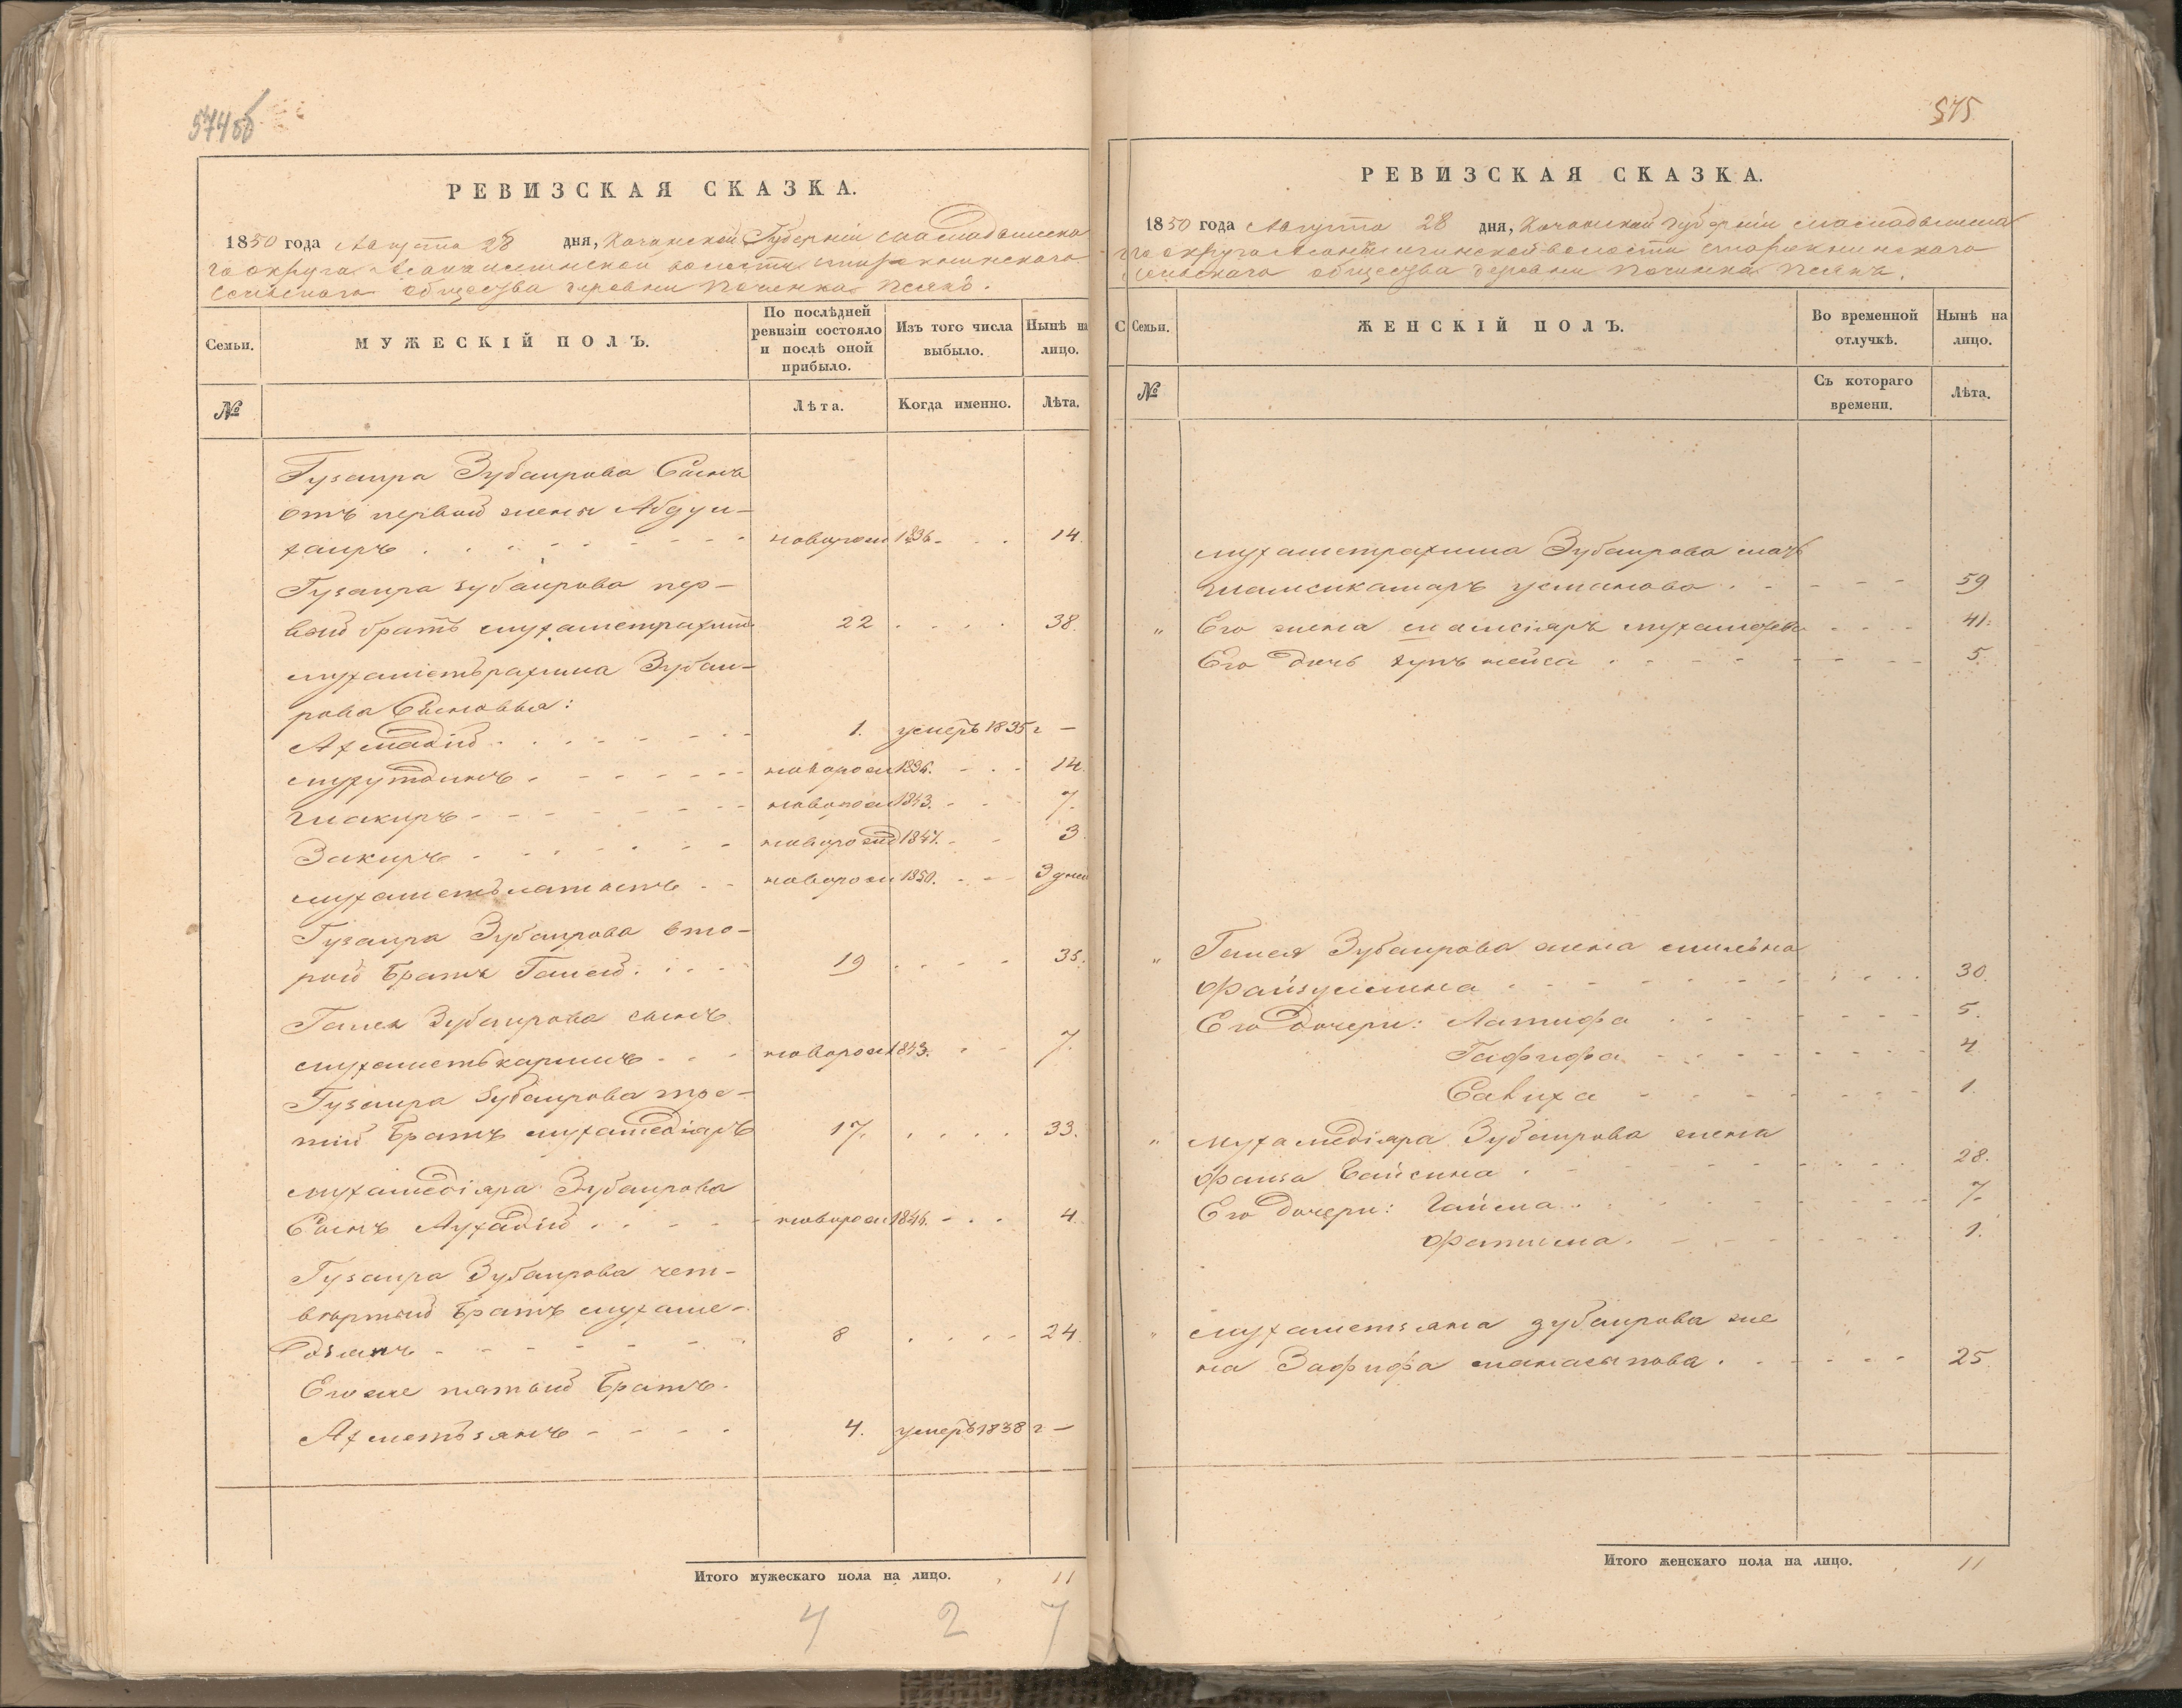 574об
РЕВИЗСКАЯ СКАЗКА.
1850 года Августа 28 дня, Казанской Губерніи Мамадышска
го округа волости
Сельскаго общества деревни Починка
Семьи.
МУЖЕСКІЙ ПОЛЪ.
По послѣдней ревизіи состояло и послѣ оной прибыло.
Изъ того числа выбыло.
Нынѣ на лицо.
№
Лѣта.
Когда именно.
Лѣта.
Гузаира Зубаирова Сынъ
отъ первой жены Абдул-
хаиръ новорож 1836. 14.
Гузаира Зубаирова пер-
вой братъ Мухаметрахимъ 22 38.
Мухаметьрахима Зубаи-
рова Сыновья:
Ахмадій 1. умеръ 1835 г —
новорож 1836. 14.
Шакиръ новорож 1843. 7.
Закиръ новорожд 1847. 3.
новорож 1850. 3 дней
Гузаира Зубаирова вто-
рой братъ Галей 19 35.
Галея Зубаирова сынъ
Мухаметькаримъ новорож 1843. 7.
Гузаира Зубаирова тре-
тій братъ Мухамедіяръ 17. 33.
Мухамедіяра Зубаирова
Сынъ новорож 1846. 4.
Гузаира Зубаирова чет-
вертый братъ Мухаме-
дзянъ 8 24.
Его же пятый братъ
Ахметьзянъ 4. умеръ 1838 г —
Итого мужескаго пола на лицо. 11
4 2 7
575
РЕВИЗСКАЯ СКАЗКА.
1850 года Августа 28 дня, Казанской губерніи Мамадышска
го округа волости
Сельскаго общества деревни Починка
С Семьи.
ЖЕНСКІЙ ПОЛЪ.
Во временной отлучкѣ.
Нынѣ на лицо.
№
Съ котораго времени.
Лѣта.
Мухаметрахима Зубаирова мать
Шамсикамаръ Усманова 59
" Его жена 41.
Его дочь 5.
" Галея Зубаирова жена
Файзуллина 30.
Его дочери: Латифа 5.
Гафифа 4
Сабиха 1.
" Мухамедіяра Зубаирова жена
Фаиза 28.
Его дочери: 7.
Фатима. 1.
" Мухаметзяна Зубаирова же
на Зафифа 25.
Итого женскаго пола на лицо. 11